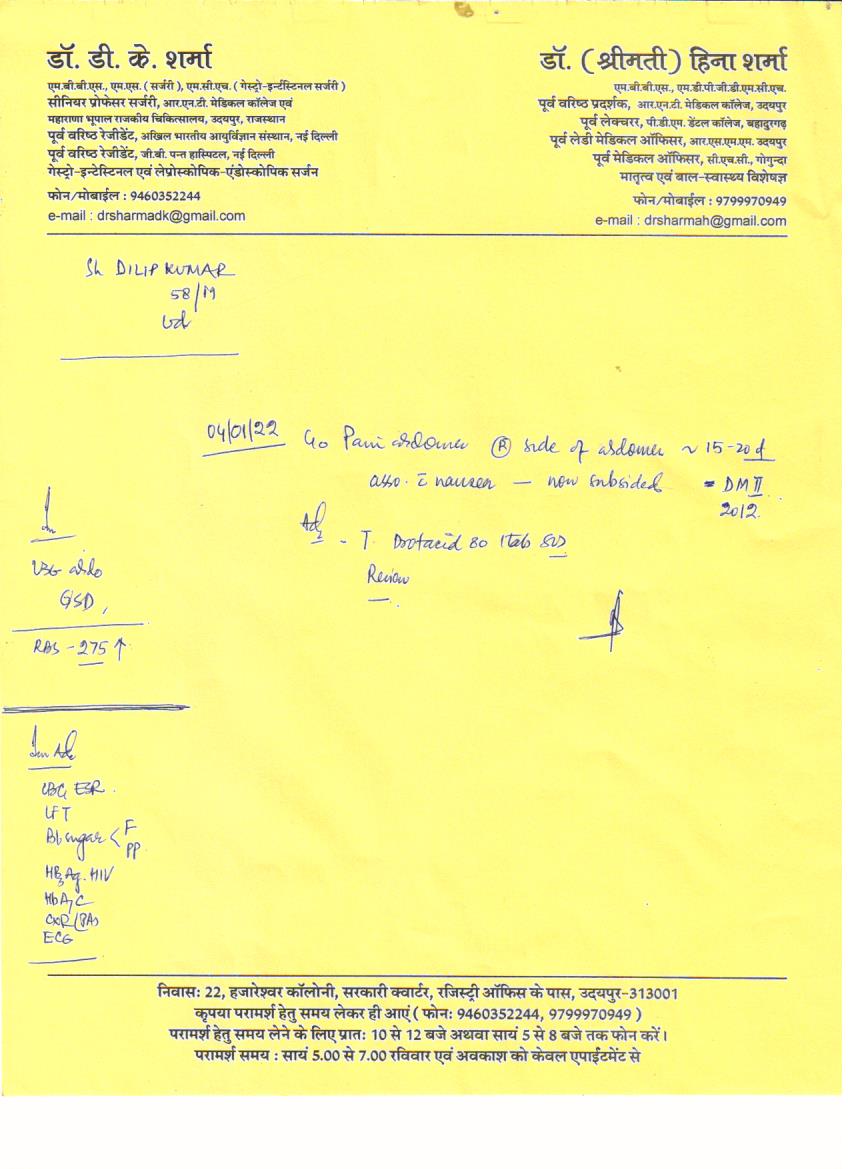 डॉ. डी. के. शर्मा
एम.बी.बी.एस., एम.एस. ( सर्जरी ), एम.सी.एच. ( गेस्ट्रो-इन्टेस्टिनल सर्जरी )
सीनियर प्रोफेसर सर्जरी, आर.एन.टी. मेडिकल कॉलेज एवं
महाराणा भूपाल राजकीय चिकित्सालय, उदयपुर, राजस्थान
पूर्व वरिष्ठ रेजीडेंट, अखिल भारतीय आयुर्विज्ञान संस्थान, नई दिल्ली
पूर्व वरिष्ठ रेजीडेंट, जी.बी. पन्त हास्पिटल, नई दिल्ली
गेस्ट्रो-इन्टेस्टिनल एवं लेप्रोस्कोपिक-एंडोस्कोपिक सर्जन
फोन/मोबाईल : 9460352244
e-mail : drsharmadk@gmail.com
डॉ. ( श्रीमती ) हिना शर्मा
एम.बी.बी.एस., एम.डी.पी.जी.डी.एम.सी.एच.
पूर्व वरिष्ठ प्रदर्शक, आर.एन.टी. मेडिकल कॉलेज, उदयपुर
पूर्व लेक्चरर, पी.डी.एम. डेंटल कॉलेज, बहादुरगढ़
पूर्व लेडी मेडिकल ऑफिसर, आर.एस.एम.एम. उदयपुर
पूर्व मेडिकल ऑफिसर, सी.एच.सी., गोगुन्दा
मातृत्व एवं बाल-स्वास्थ्य विशेषज्ञ
फोन/मोबाईल : 9799970949
e-mail : drsharmah@gmail.com
Sh DILIP KUMAR
58/M
Ud
04/01/22 C/o Pain abdomen Ⓡ side of abdomen ~ 15-20 d
asso. c̄ nausea — now subsided = DM II
2012.
Adv - T. 80 1 tab
Review
USG abdo
GSD,
RBS - 275 ↑
Inv Adv
CBC, ESR.
LFT
Bl sugar < F
PP
HBsAg. HIV
HbA1C
CXR (PA)
ECG
निवास: 22, हजारेश्वर कॉलोनी, सरकारी क्वार्टर, रजिस्ट्री ऑफिस के पास, उदयपुर-313001
कृपया परामर्श हेतु समय लेकर ही आएं ( फोन: 9460352244, 9799970949 )
परामर्श हेतु समय लेने के लिए प्रात: 10 से 12 बजे अथवा सायं 5 से 8 बजे तक फोन करें।
परामर्श समय : सायं 5.00 से 7.00 रविवार एवं अवकाश को केवल एपाईंटमेंट से